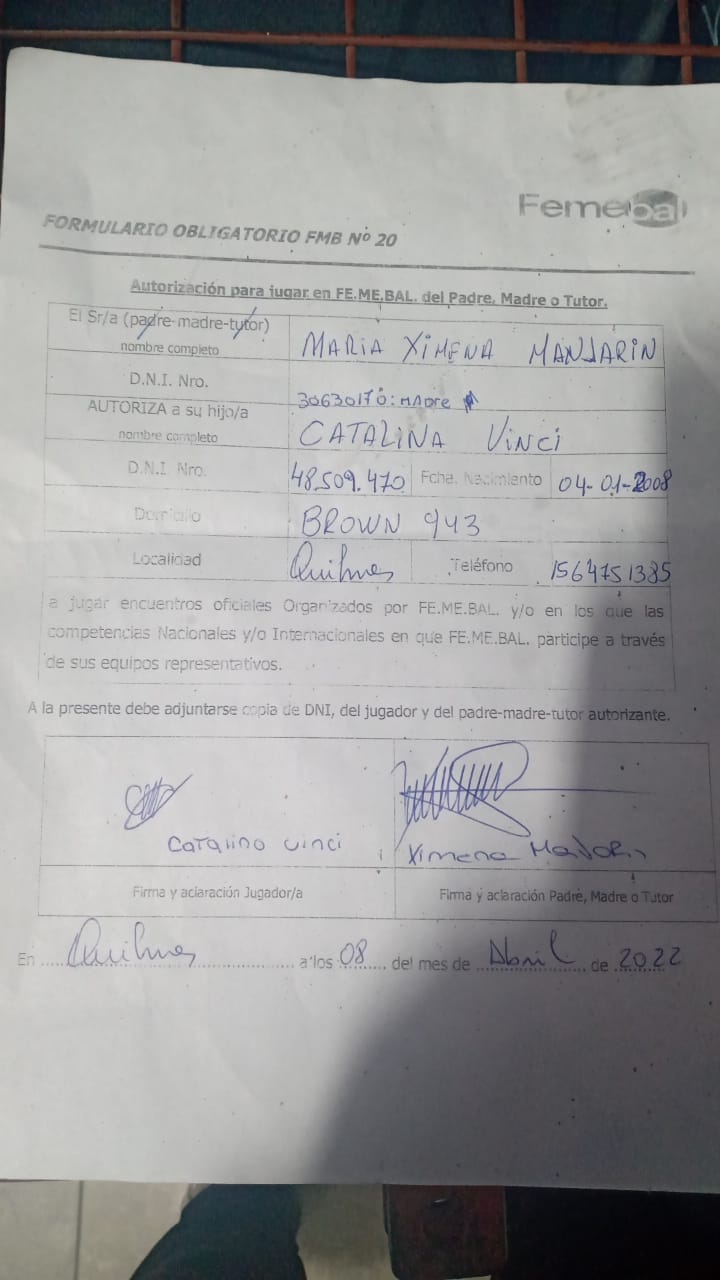 Femebal
FORMULARIO OBLIGATORIO FMB Nº 20
Autorización para jugar en FE.ME.BAL. del Padre, Madre o Tutor.
El Sr/a (padre-madre-tutor)
nombre completo
MARIA XIMENA MANJARIN
D.N.I. Nro.
30630170: MADRE
AUTORIZA a su hijo/a
nombre completo
CATALINA VINCI
D.N.I. Nro. 48.509.470 Fcha. Nacimiento 04-01-2008
Domicilio BROWN 943
Localidad Quilmes Teléfono 1564751385
a jugar encuentros oficiales Organizados por FE.ME.BAL. y/o en los que las
competencias Nacionales y/o Internacionales en que FE.ME.BAL. participe a través
de sus equipos representativos.
A la presente debe adjuntarse copia de DNI, del jugador y del padre-madre-tutor autorizante.
Catalina Vinci Ximena
Firma y aclaración Jugador/a Firma y aclaración Padre, Madre o Tutor
En Quilmes a los 08 del mes de Abril de 2022